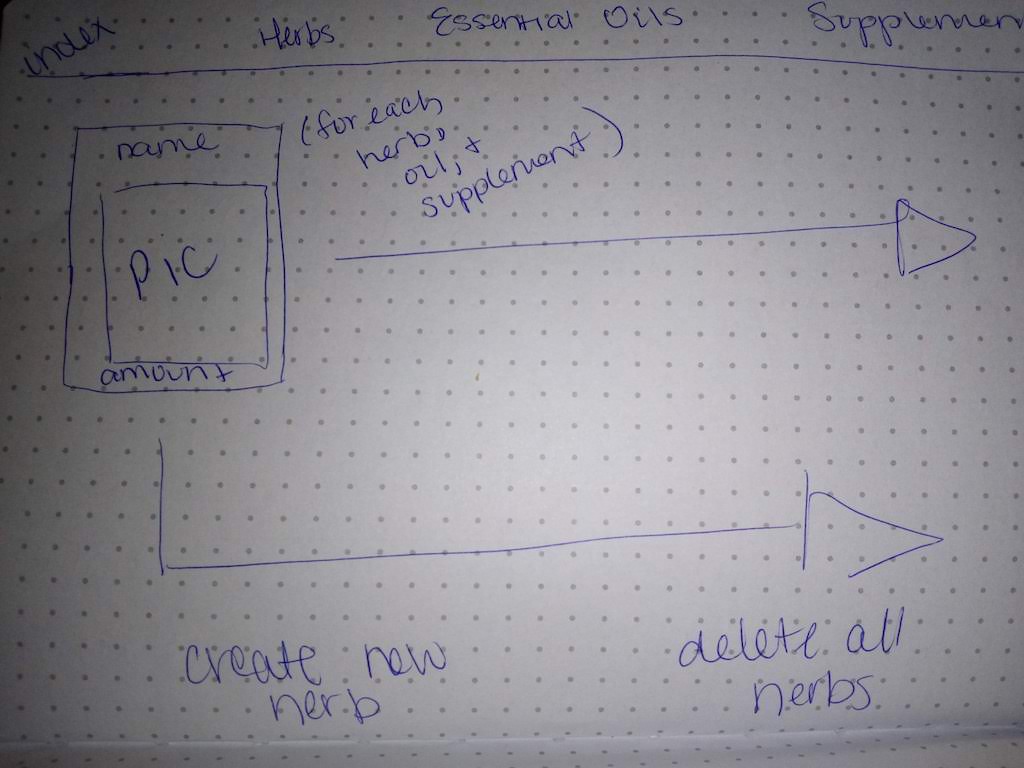 index Herbs Essential Oils Supplemen
name
PIC
amount
(for each
herb,
oil, +
supplement)
create new
herb
delete all
herbs